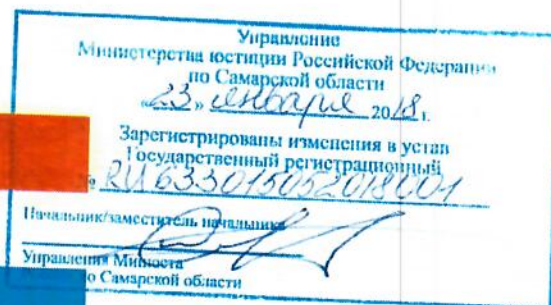 Управление
Министерства юстиции Российской Федерации
по Самарской области
«23» января 2018 г.
Зарегистрированы изменения в устав
Государственный регистрационный
№ RU 633015052018001
Начальник/заместитель начальника
Управления Минюста
по Самарской области